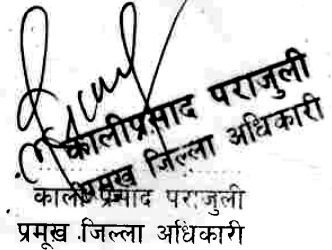 कालीप्रसाद पराजुली
प्रमुख जिल्ला अधिकारी
काली प्रसाद पराजुली
प्रमूख जिल्ला अधिकारी